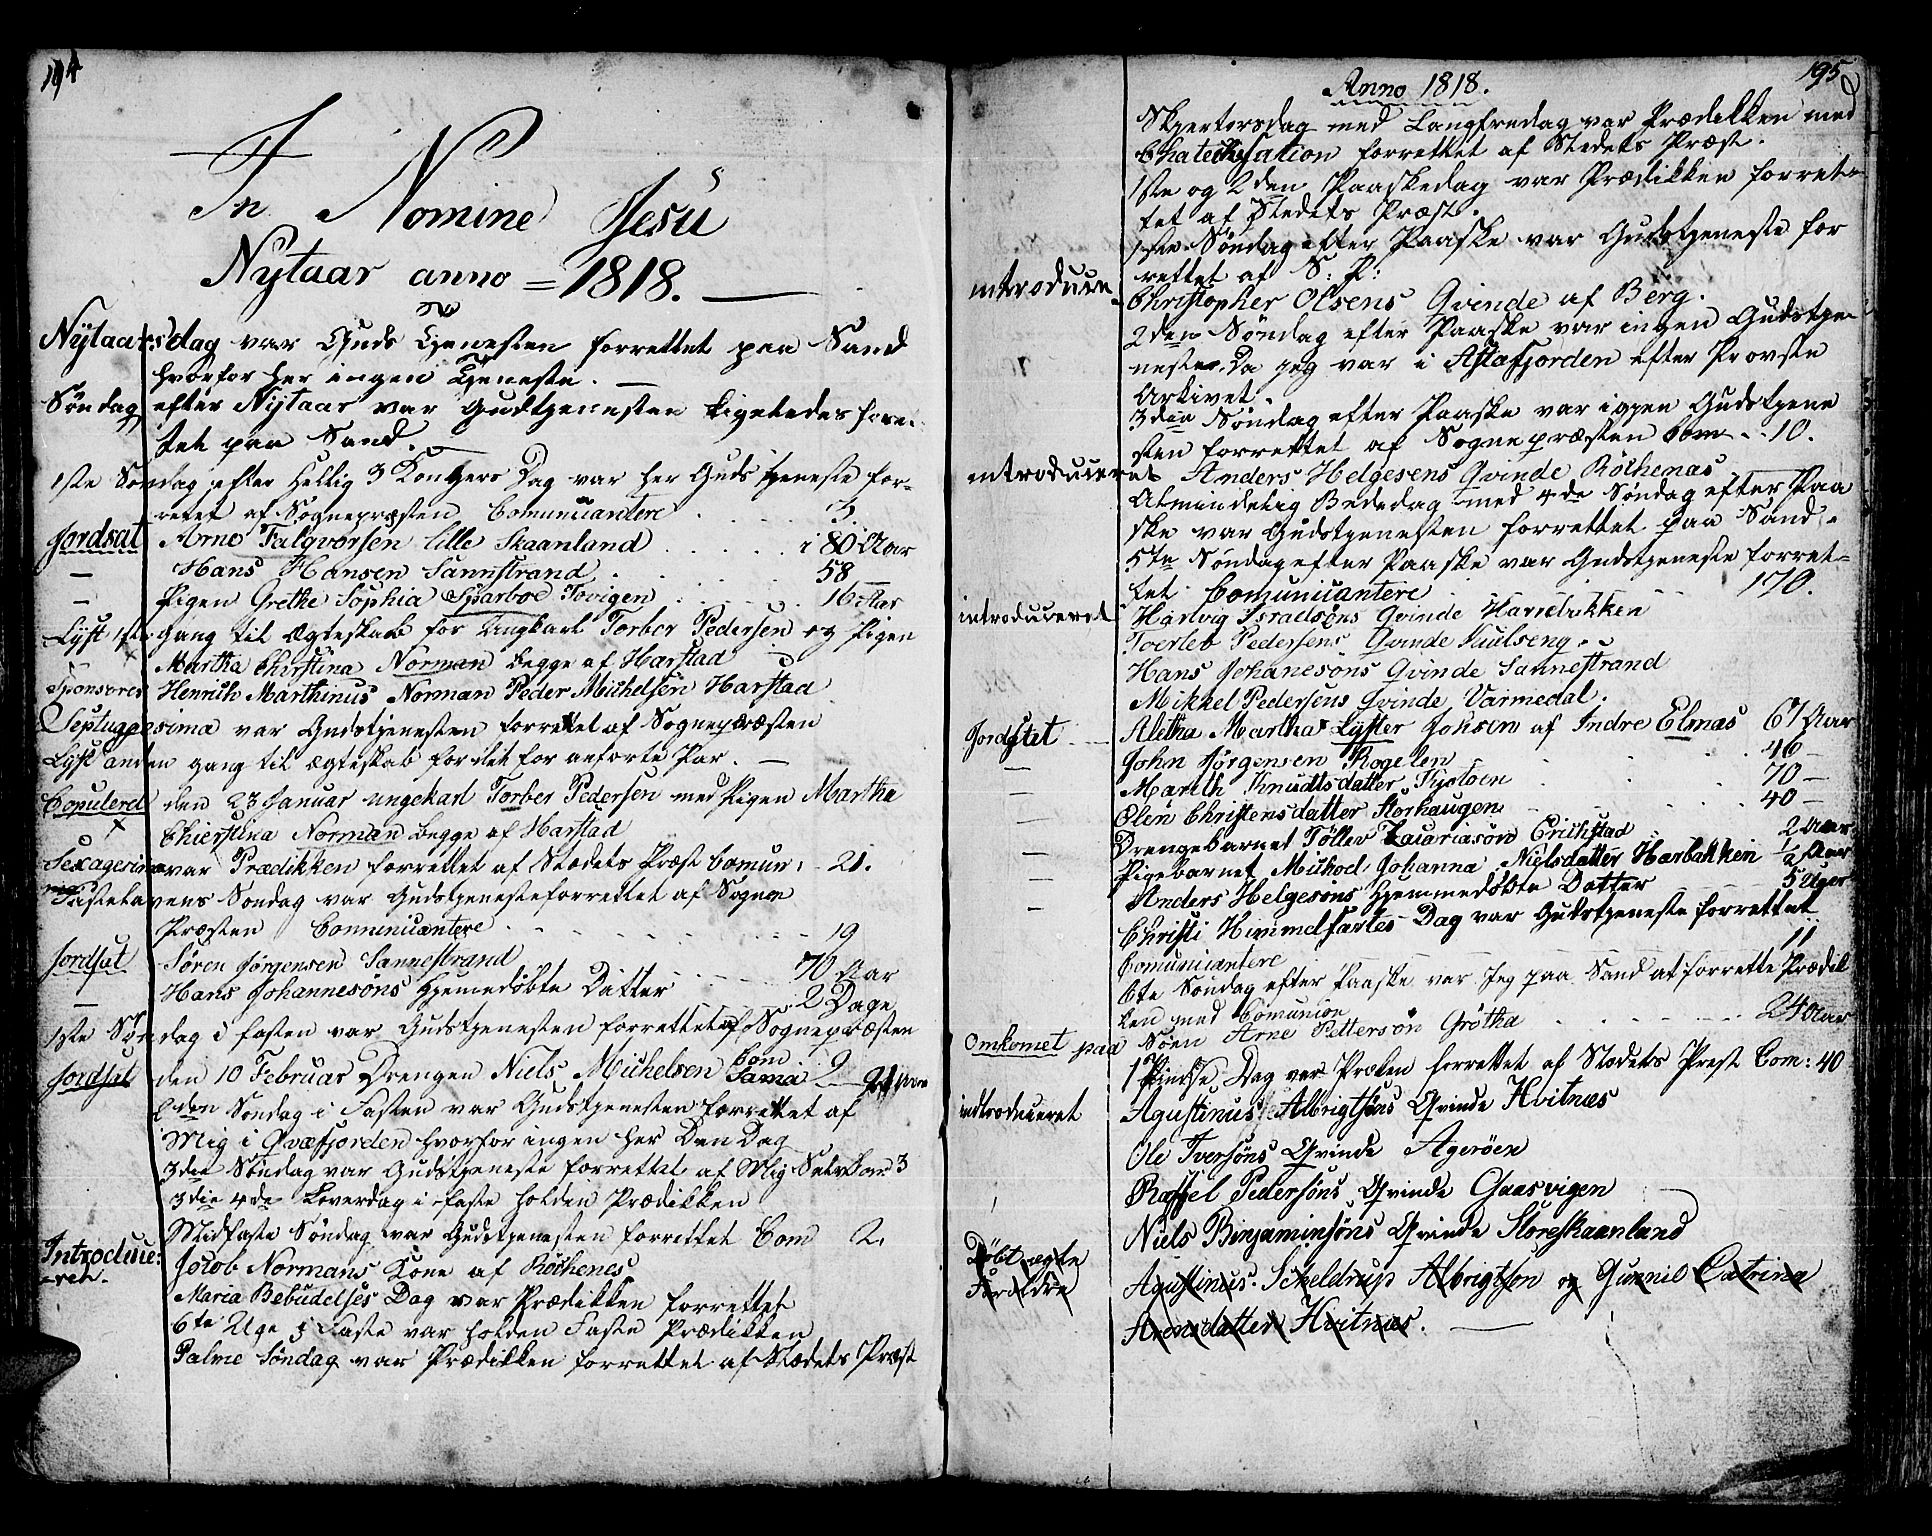 194
In Nomine Jesu
Nytaar anno = 1818.
Nytaarsdag var Guds Tjenesten forrettet paa Sand
hvorfor her ingen Tjeneste.
Søndag efter Nytaar var Gudstjenesten ligeledes forre-
tet paa Sand.
1ste Søndag efter Hellig 3 Kongers Dag var her Guds tjeneste for-
rettet af Sognepræsten Comunicantere 3.
Jordsat Arne Falqvorsen lille Skaanland i 80 Aar
— Hans Hansen Sannstrand 58
— Pigen Grethe Sophia Sparboe Tovigen 16 Aar
Lyst 1ste Gang til Ægteskab for Ungkarl Torber Pedersen og Pigen
Martha Chirstina Norman begge af Harstad
Sponsores Henrich Marthinus Norman Peder Michelsen Harstad
Septuggesima var Gudstjenesten forrettet af Sognepræsten
Lyst anden gang til Ægteskab for det for anførte Par.
Copulered den 23 Januar ungekarl Torber Pedersen med Pigen Martha
Chierstina Norman begge af Harstad
Sexagesima var Prædikken forrettet af Stædets Præst Comun: 21.
Fastelavens Søndag var Gudstjeneste forrettet af Sogne
Præsten Comunicantere 19
Jordsat Søren Jørgensen Sannestrand 70 Aar
— Hans Johannesøns hjemedøbte Datter 2 Dage
1ste Søndag i fasten var Gudstjenesten forrettet af Sognepræsten
Com 2
Jordsat den 10 Februar Drengen Niels Michelsen Sama
2den Søndag i Fasten var Gudstjenesten forrettet af
Mig i Qvæfjorden hvorfor ingen her Den Dag
3die Søndag var Gudstjeneste forrettet af Mig Selv Com 3
3die 4de Løverdag i faste holden Prædikken
Midfaste Søndag var Gudstjenesten forrettet Com 2.
Introduce:
ret. Jacob Normans Kone af Röchenes
Maria Bebudelses Dag var Prædikken forrettet
6te Uge i Faste var holden Faste Prædikken
Palme Søndag var Prædikken forrettet af Stædets Præst
195
Anno 1818.
Skjertorsdag med Langfredag var Prædikken med
Chatechesation forrettet af Stedets Præst.
1ste og 2den Paaskedag var Prædikken forret-
tet af Stedets Præst.
1ste Søndag efter Paaske var Gudstjeneste for
rettet af S: P:
introduce Christopher Olsens Qvinde af Berg.
2den Søndag efter Paaske var ingen Gudstje-
neste. Da jeg var i Astafjorden efter Provste
Arkivet.
3die Søndag efter Paaske var igjen Gudstjene
sten forrettet af Sognepræsten Com 10.
introduceret Anders Helgesens Qvinde Röchenas
Almindelig Bededag med 4de Søndag efter Paa
ske var Gudstjenesten forrettet paa Sand.
5te Søndag efter Paaske var Gudstjeneste forret-
tet. Comunicantere 170.
introduceret Hartvig Israelsøns Qvinde Harrebakken
Toerleb Pedersens Qvinde Kuulseng
Hans Johanesøns Qvinde Sannestrand
Mikkel Pedersens Qvinde Varmedal.
Jordstet Aletha Martha Lyster Johsen af Indre Elmas 67 Aar
— John Jørgensen Rogelen 46 —
— Marith Knudtsdatter Kjøtøen 70 —
— Olen Christensdatter Storhaugen 40 —
— Drengebarnet Töller Zacariasøn Erichstad 2 Aar
— Pigebarnet Michod Johanna Nielsdatter Harbakken 1/2 Aar
— Anders Helgesøns hjemmedøbte Datter 5 Uger
Christi Himmelfartes Dag var Gudstjeneste forrettet
Comunicantere 11
6te Søndag efter Paaske var Jeg paa Sand at forrette Prædik
ken med Comunion
Omkomet paa Søen Arne Pettersøn Grötha 24 Aar
1 Pindse Dag var Præken forrettet af Stedets Prest Com: 40
indtroduceret Agustinus Albrigtsøns Qvinde Hvitnæs
Ole Iversøns Qvinde Agerøen
Rassel Pedersøns Qvinde Gaasvigen
Niels Binjaminsøns Qvinde Storeskaanland
Döbt ægte
Forældre Agustinus Scheldrup Albrigtson og Gunnil Catrina
Arensdatter Hvitnæs.